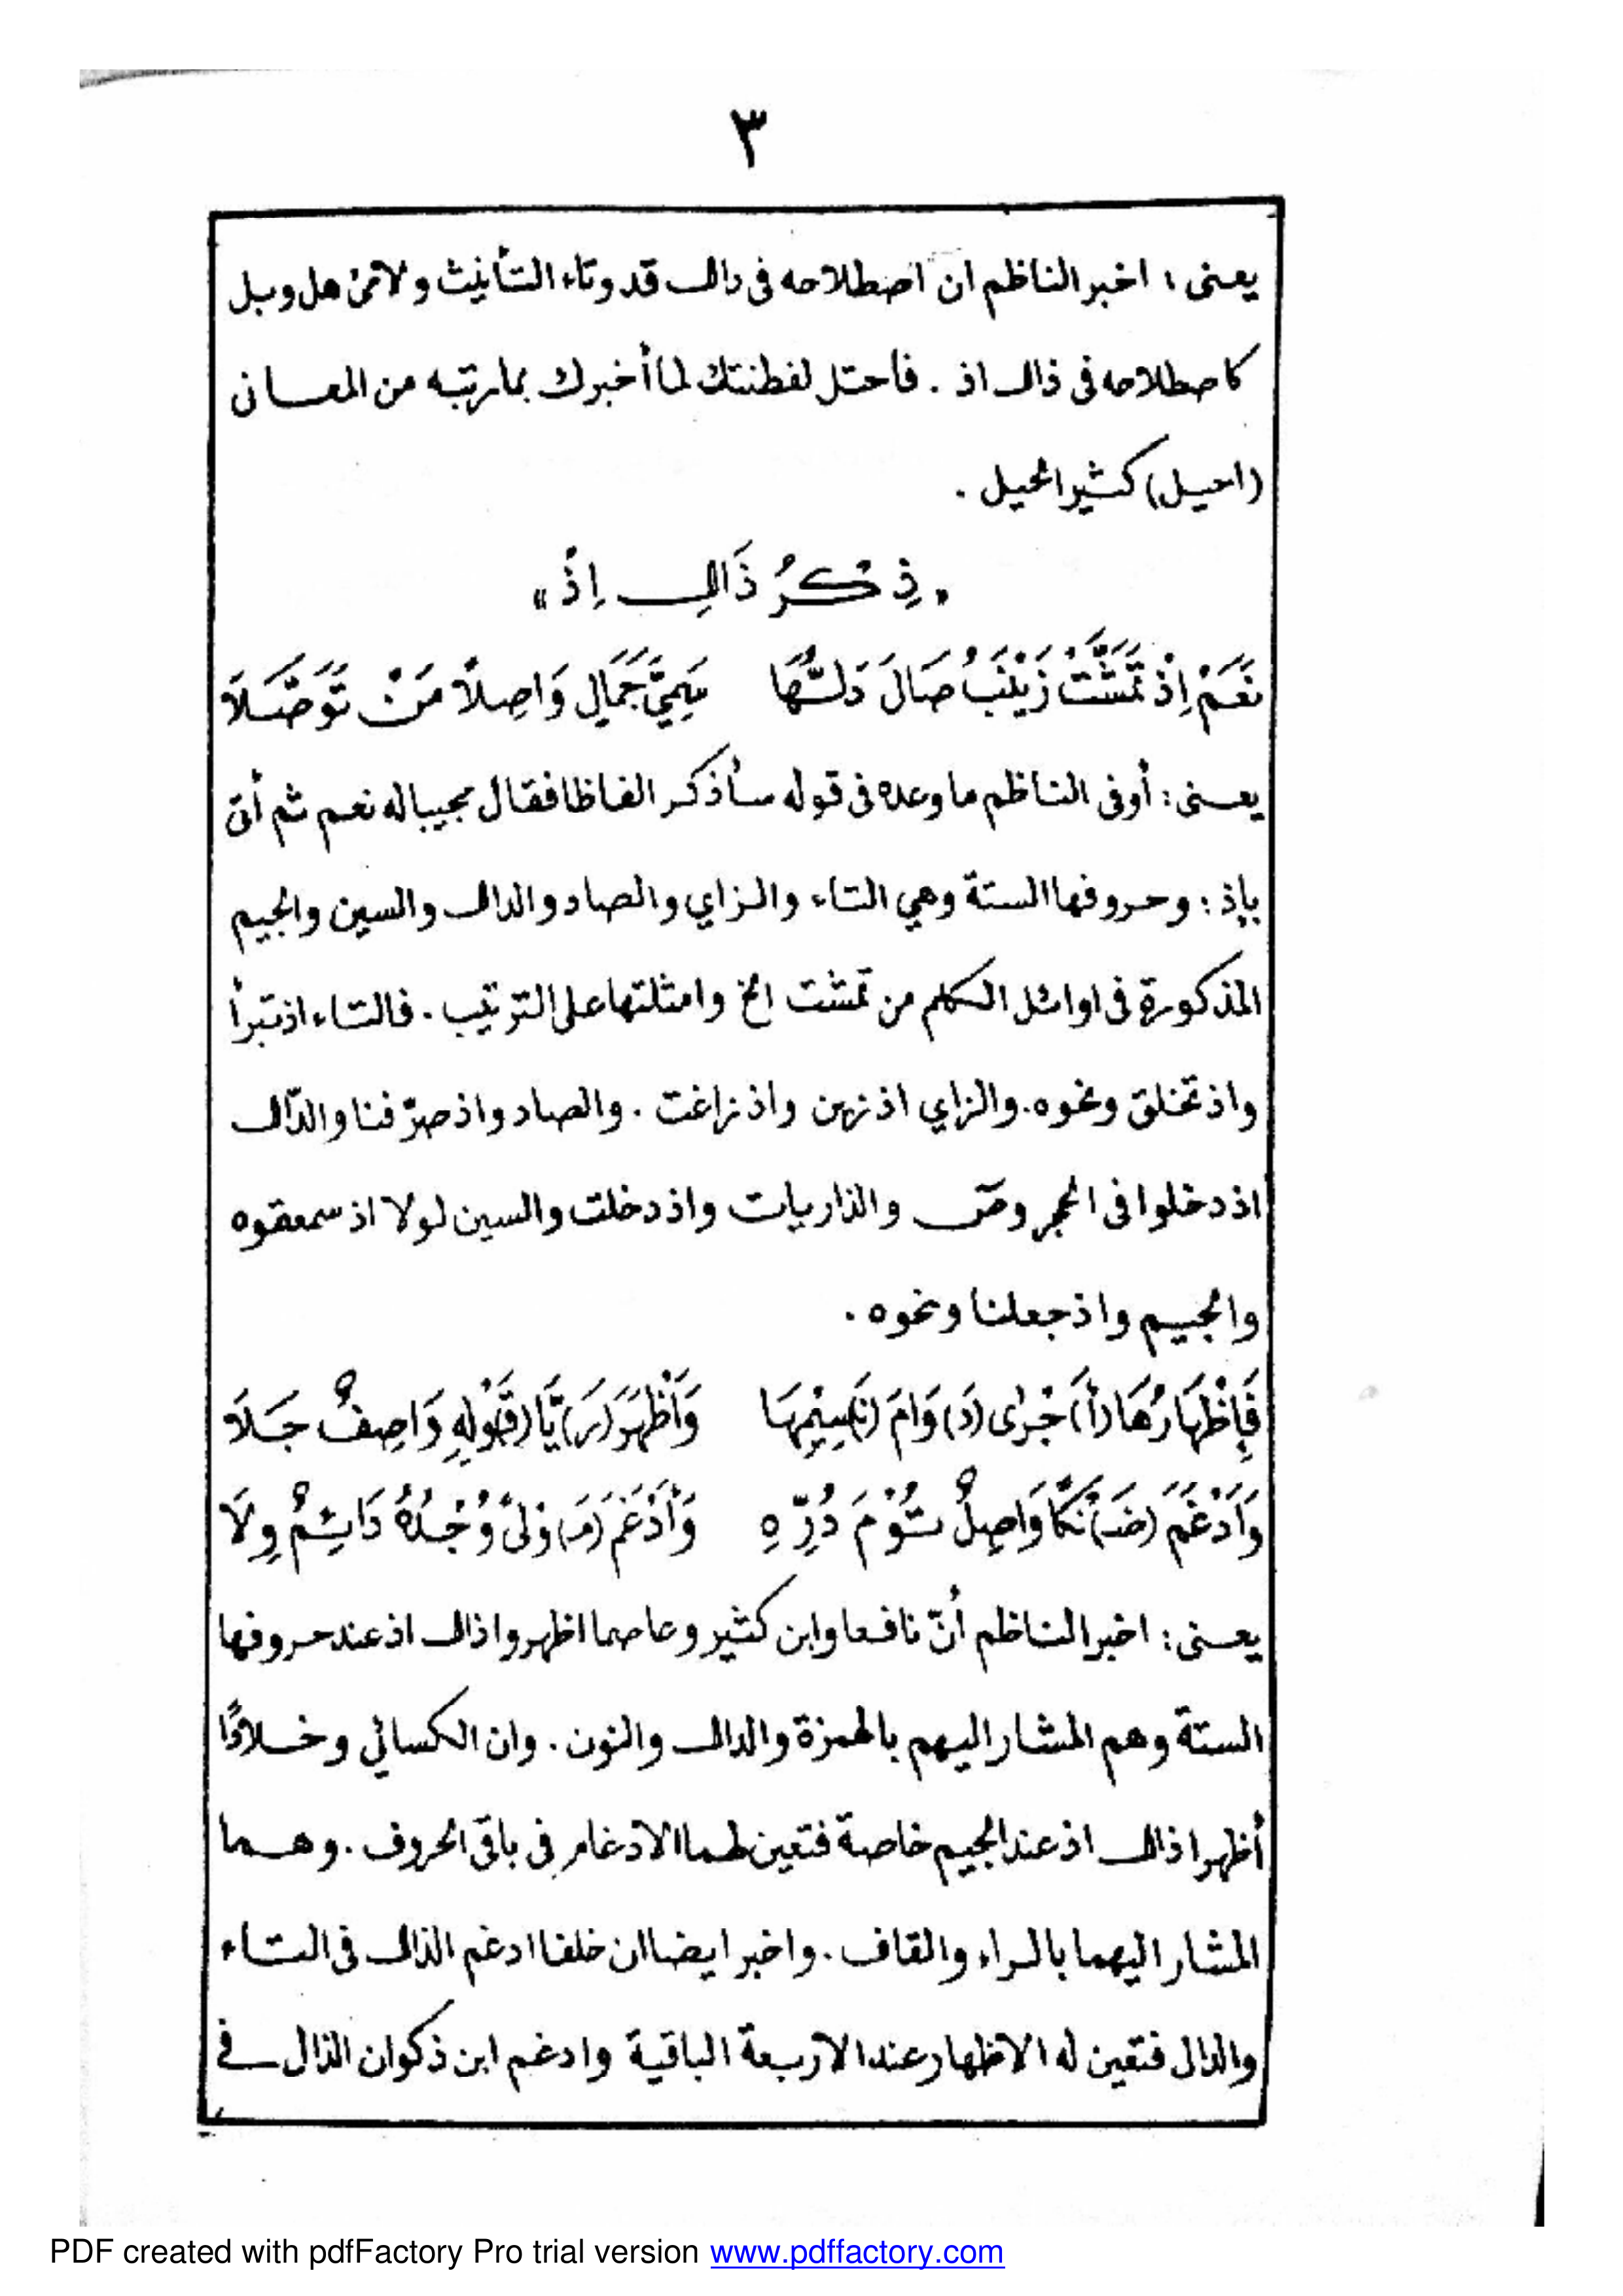 ٣
يعنى : اخبر الناظم ان اصطلاحه فى دال قد وتاء التأنيث ولامى هل وبل
كاصطلاحه فى ذال اذ . فاحتل لفطنتك لما أخبرك بما رتبه من المعانى
(احيل) كثير الحيل .
« ذِكْرُ ذَالِ اِذْ »
نَعَمْ اِذْ تَمَشَّتْ زَيْنَبُ صَالَ دَلُّهَا سَمِيَّ جَمَالٍ وَاصِلًا مَنْ تَوَصَّلَا
يعنى : أوفى الناظم ما وعده فى قوله سأذكر الفاظا فقال مجيبا له نعم ثم أتى
بإذ : وحروفها الستة وهي التاء والزاي والصاد والدال والسين والجيم
المذكورة فى اوائل الكلم من تمشت الخ وامثلتها على الترتيب . فالتاء اذ تبرأ
واذ تخلق ونحوه . والزاي اذ زين واذ زاغت . والصاد واذ صرّفنا والدّال
اذ دخلوا فى الحجر وصٓ والذاريات واذ دخلت والسين لولا اذ سمعتموه
والجيم واذ جعلنا ونحوه .
فَإِظْهَارُهَا (أَ)جْرٰى (دَ)وَامَ (نَ)سِيْمِهَا وَاَظْهَرَ (رَ)يَّا (قَ)وْلِهِ وَاصِفٌ جَلَا
وَاَدْغَمَ (ضَ)نْكًا وَاصِلٌ تُوْمَ دُرِّهِ وَأَدْغَمَ (مَ)وْلىً وُجْدُهُ دَائِمٌ وِلَا
يعنى : اخبر الناظم أنّ نافعا وابن كثير وعاصما اظهروا ذال اذ عند حروفها
الستة وهم المشار اليهم بالهمزة والدال والنون . وان الكسائي وخلادًا
أظهرا ذال اذ عند الجيم خاصة فتعين لهما الادغام فى باقى الحروف . وهما
المشار اليهما بالراء والقاف . واخبر ايضا ان خلفا ادغم الذال فى التاء
والدال فتعين له الاظهار عند الاربعة الباقية وادغم ابن ذكوان الذال فى
PDF created with pdfFactory Pro trial version www.pdffactory.com